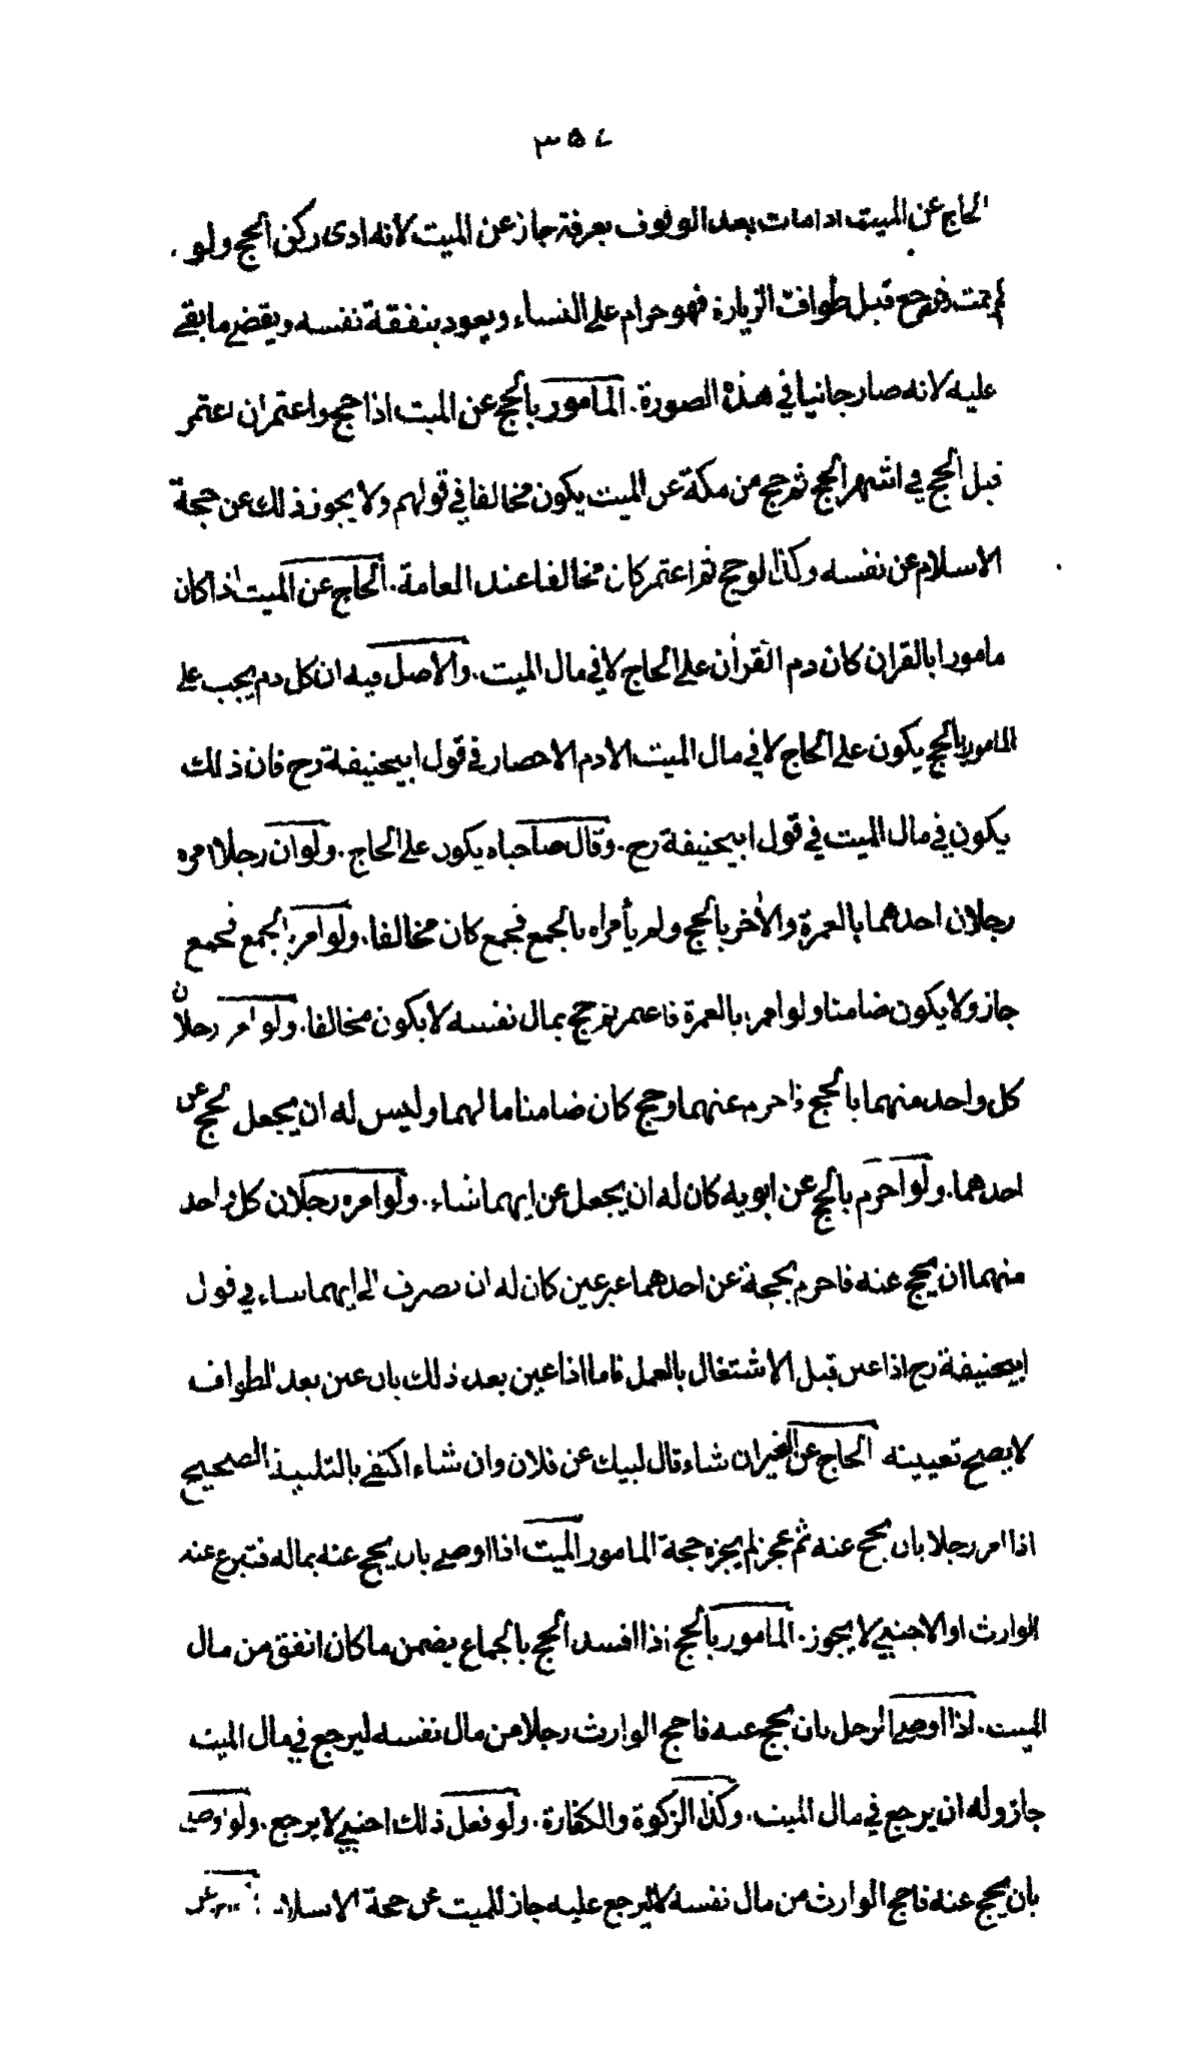 ٣٥٤
الحاج عن الميت اذا مات بعد الوقوف بعرفة جاز عن الميت لانه ادى ركن الحج ولو
لم يمت فرجع قبل طواف الزيارة فهو حرام على النساء ويعود بنفقة نفسه ويقضي ما بقى
عليه لانه صار جانيا في هذه الصورة. المامور بالحج عن الميت اذا حج واعتمر ان اعتمر
قبل الحج في اشهر الحج ثم حج من مكة عن الميت يكون مخالفا في قولهم ولا يجوز ذلك عن حجة
الاسلام عن نفسه وكذا لو حج ثم اعتمر كان مخالفا عند العامة. الحاج عن الميت اذا كان
مامورا بالقران كان دم القران على الحاج لا في مال الميت. والاصل فيه ان كل دم يجب على
المامور بالحج يكون على الحاج لا في مال الميت الا دم الاحصار في قول ابيحنيفة رح فان ذلك
يكون في مال الميت في قول ابيحنيفة رح. وقال صاحباه يكون على الحاج. ولو ان رجلا امره
رجلان احدهما بالعمرة والأخر بالحج ولم يأمراه بالجمع فجمع كان مخالفا. ولو امر بالجمع فجمع
جاز ولا يكون ضامنا ولو امر بالعمرة فاعتمر ثم حج بمال نفسه لا يكون مخالفا. ولو امر رجلان
كل واحد منهما بالحج فاحرم عنهما وحج كان ضامنا ما لهما وليس له ان يجعل الحج عن
احدهما. ولو احرم بالحج عن ابويه كان له ان يجعل عن ايهما شاء. ولو امره رجلان كل واحد
منهما ان يحج عنه فاحرم بحجة عن احدهما غير عين كان له ان يصرف الى ايهما شاء في قول
ابيحنيفة رح اذا عين قبل الاشتغال بالعمل فاما اذا عين بعد ذلك بان عين بعد الطواف
لا يصح تعيينه الحاج عن الغير ان شاء قال لبيك عن فلان وان شاء اكتفى بالتلبية الصحيح
اذا امر رجلا بان يحج عنه ثم عجز لم يجزه حجة المامور الميت اذا اوصى بان يحج عنه بماله فتبرع عنه
الوارث او الاجنبي لا يجوز. المامور بالحج اذا افسد الحج بالجماع يضمن ما كان انفق من مال
الميت. اذا اوصى الرجل بان يحج عنه فاحج الوارث رجلا من مال نفسه ليرجع في مال الميت
جاز وله ان يرجع في مال الميت. وكذا الزكوة والكفارة. ولو فعل ذلك اجنبي لا يرجع. ولو اوصى
بان يحج عنه فاحج الوارث من مال نفسه لا ليرجع عليه جاز للميت عن حجة الاسلام